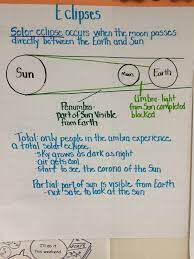 Eclipses
Solar eclipse occurs when the moon passes
directly between the Earth and Sun
Sun
Moon
Earth
Penumbra -
part of Sun visible
from Earth
Umbra - light
from Sun completed
blocked
Total: only people in the umbra experience
a total solar eclipse.
- sky grows as dark as night
- air gets cool
- start to see the corona of the Sun
Partial part of sun is visible from Earth
- not safe to look at the sun
I'll go it
This weekend